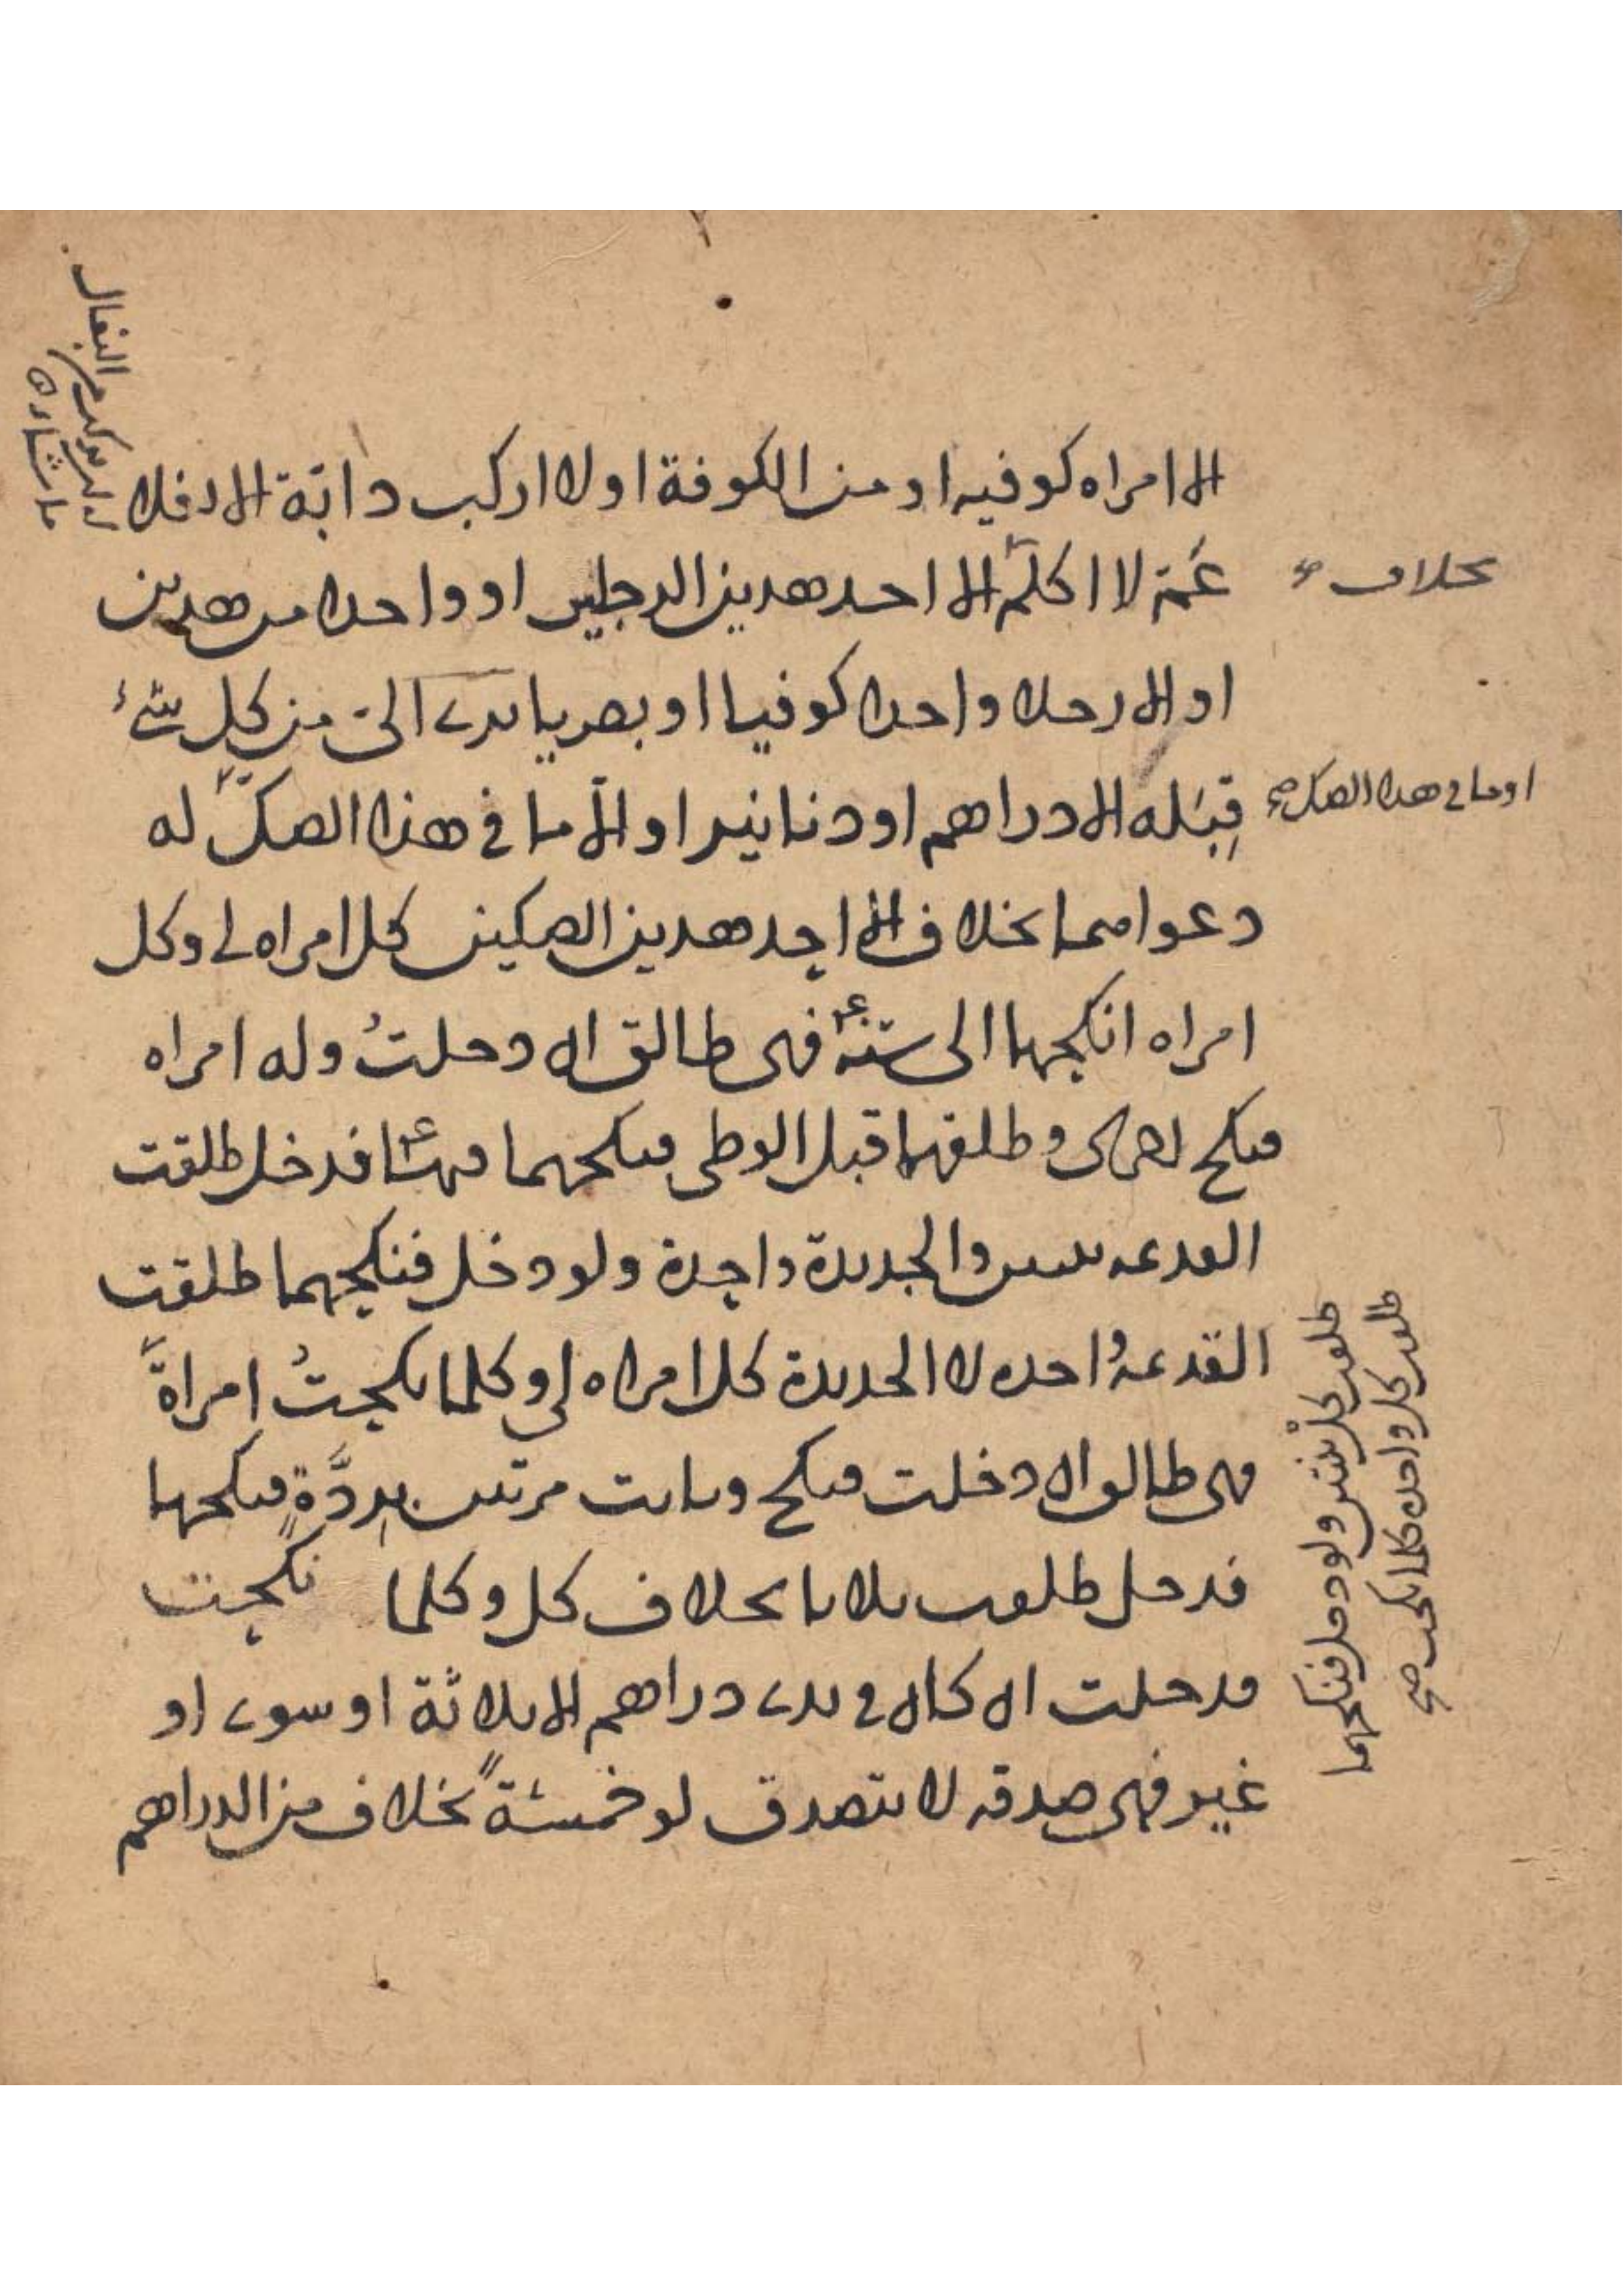 الا امراه كوفيه او من الكوفة او لا اركب دابة الا بغلا
عَمّ لا اكلم الا احد هذين الرجلين او واحدا من هذين
او الا رجلا واحدا كوفيا او بصريا برئ اليّ من كل شئ
قِبَله الا دراهم او دنانير او الا ما في هذا الصكّ له
دعواهما بخلاف الا احد هذين الصكين كل امراه لي وكل
امراه انكحها الى سنة فهي طالق ان دخلتُ وله امراه
فنكح اخرى وطلقهما قبل الوطي فنكحهما فيها فدخل طلقت
القديمه ثنتين والجديدة واحدة ولو دخل فنكحهما طلقت
القديمة واحده لا الجديدة كل امراه لي وكلما نكحتُ امراةً
فهي طالق ان دخلت فنكح وبانت مرتين بردَّةٍ فنكحها
فدخل طلقت ثلاثا بخلاف كل وكلما نكحت
فدخلت ان كان في يدي دراهم الا ثلاثة او سوى او
غير فهي صدقه لا يتصدق لو خمسةً بخلاف من الدراهم
بخلاف
او ما في هذا الصك صح
طلقت كل ثنتين ولو دخل فنكحهما
طلقت كل واحده كلما نكحت صح
البغال
ما شاء